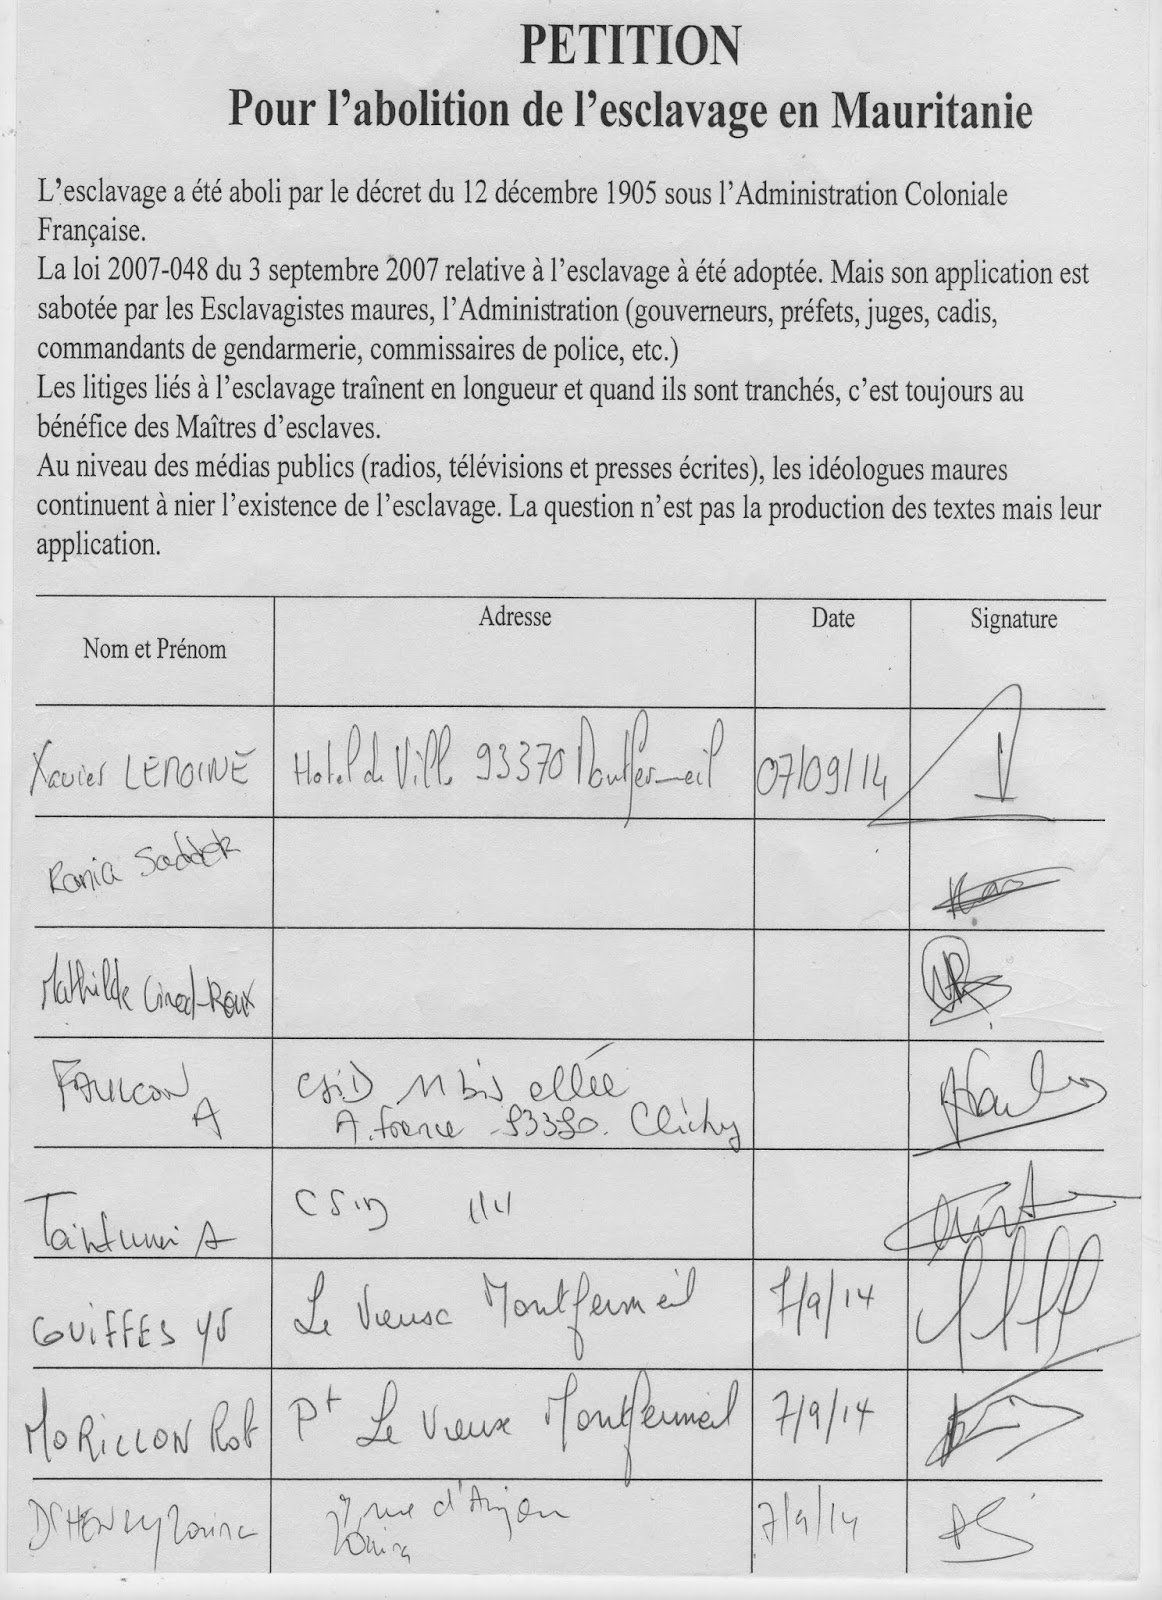 PETITION
Pour l'abolition de l'esclavage en Mauritanie
L'esclavage a été aboli par le décret du 12 décembre 1905 sous l'Administration Coloniale
Française.
La loi 2007-048 du 3 septembre 2007 relative à l'esclavage à été adoptée. Mais son application est
sabotée par les Esclavagistes maures, l'Administration (gouverneurs, préfets, juges, cadis,
commandants de gendarmerie, commissaires de police, etc.)
Les litiges liés à l'esclavage traînent en longueur et quand ils sont tranchés, c'est toujours au
bénéfice des Maîtres d'esclaves.
Au niveau des médias publics (radios, télévisions et presses écrites), les idéologues maures
continuent à nier l'existence de l'esclavage. La question n'est pas la production des textes mais leur
application.
Nom et Prénom Adresse Date Signature
Xavier LEMOINE Hotel de Ville 93370 Montfermeil 07/09/14
Rania Saddek
Mathilde
FAULCON A CSID 11 bis allée
A. France 93390 Clichy
A
GUIFFES Le Vieux Montfermeil 7/9/14
MORILLON Rob Pt Le Vieux Montfermeil 7/9/14
rue d'Anjou 7/9/14